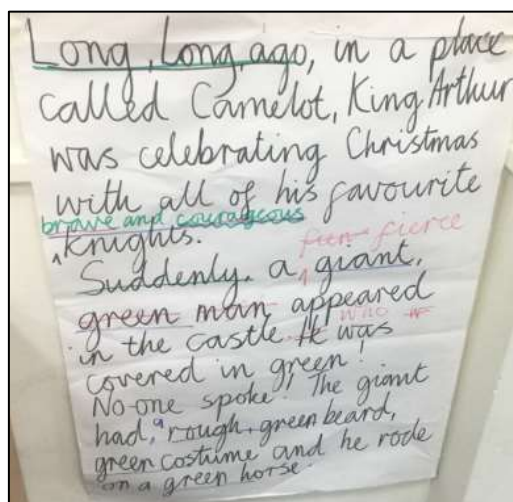 Long, long, ago, in a place
called Camelot, King Arthur
was celebrating Christmas
with all of his favourite
brave and courageous
^knights. fierce
Suddenly, a ^giant,
green man appeared
who
in the castle. He was
covered in green!
No-one spoke! The giant
had, a rough, green beard,
green costume and he rode
on a green horse.